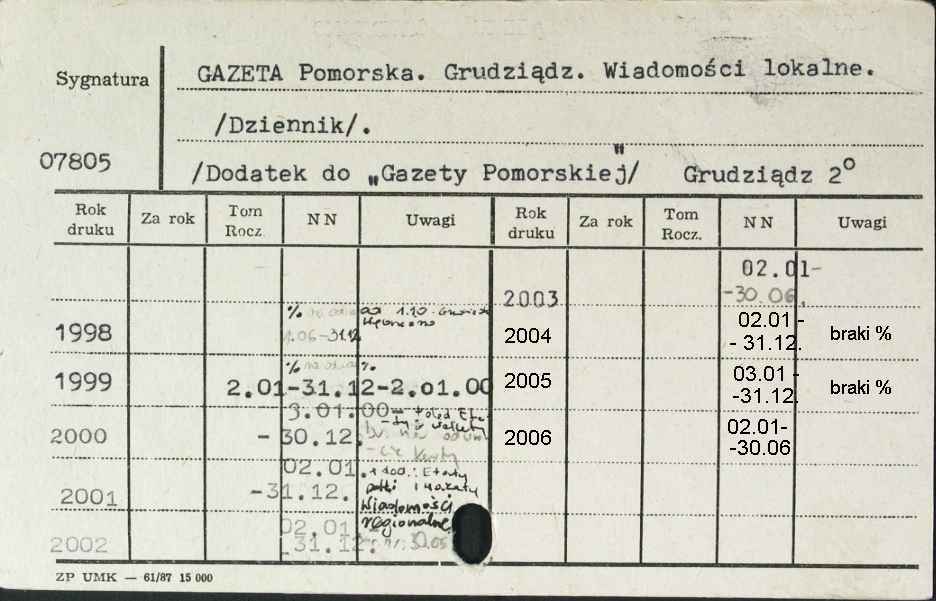 Sygnatura
GAZETA Pomorska. Grudziądz. Wiadomości lokalne.
/Dziennik/.
07805
/Dodatek do „Gazety Pomorskiej"/ Grudziądz 2°
Rok druku Za rok Tom Rocz. NN Uwagi Rok druku Za rok Tom Rocz. NN Uwagi
2003 02.01-
-30.06.
1998 % 1.06-31.12 od 1.10.
2004 02.01 -
- 31.12. braki %
1999 % %
2.01-31.12-2.01.00
2005 03.01 -
-31.12. braki %
2000 3.01.00-
- 30.12.
2006 02.01-
-30.06
2001 02.01.
-31.12.
Wiadomości
regionalne
2002 02.01
-31.12.
ZP UMK — 61/87 15 000